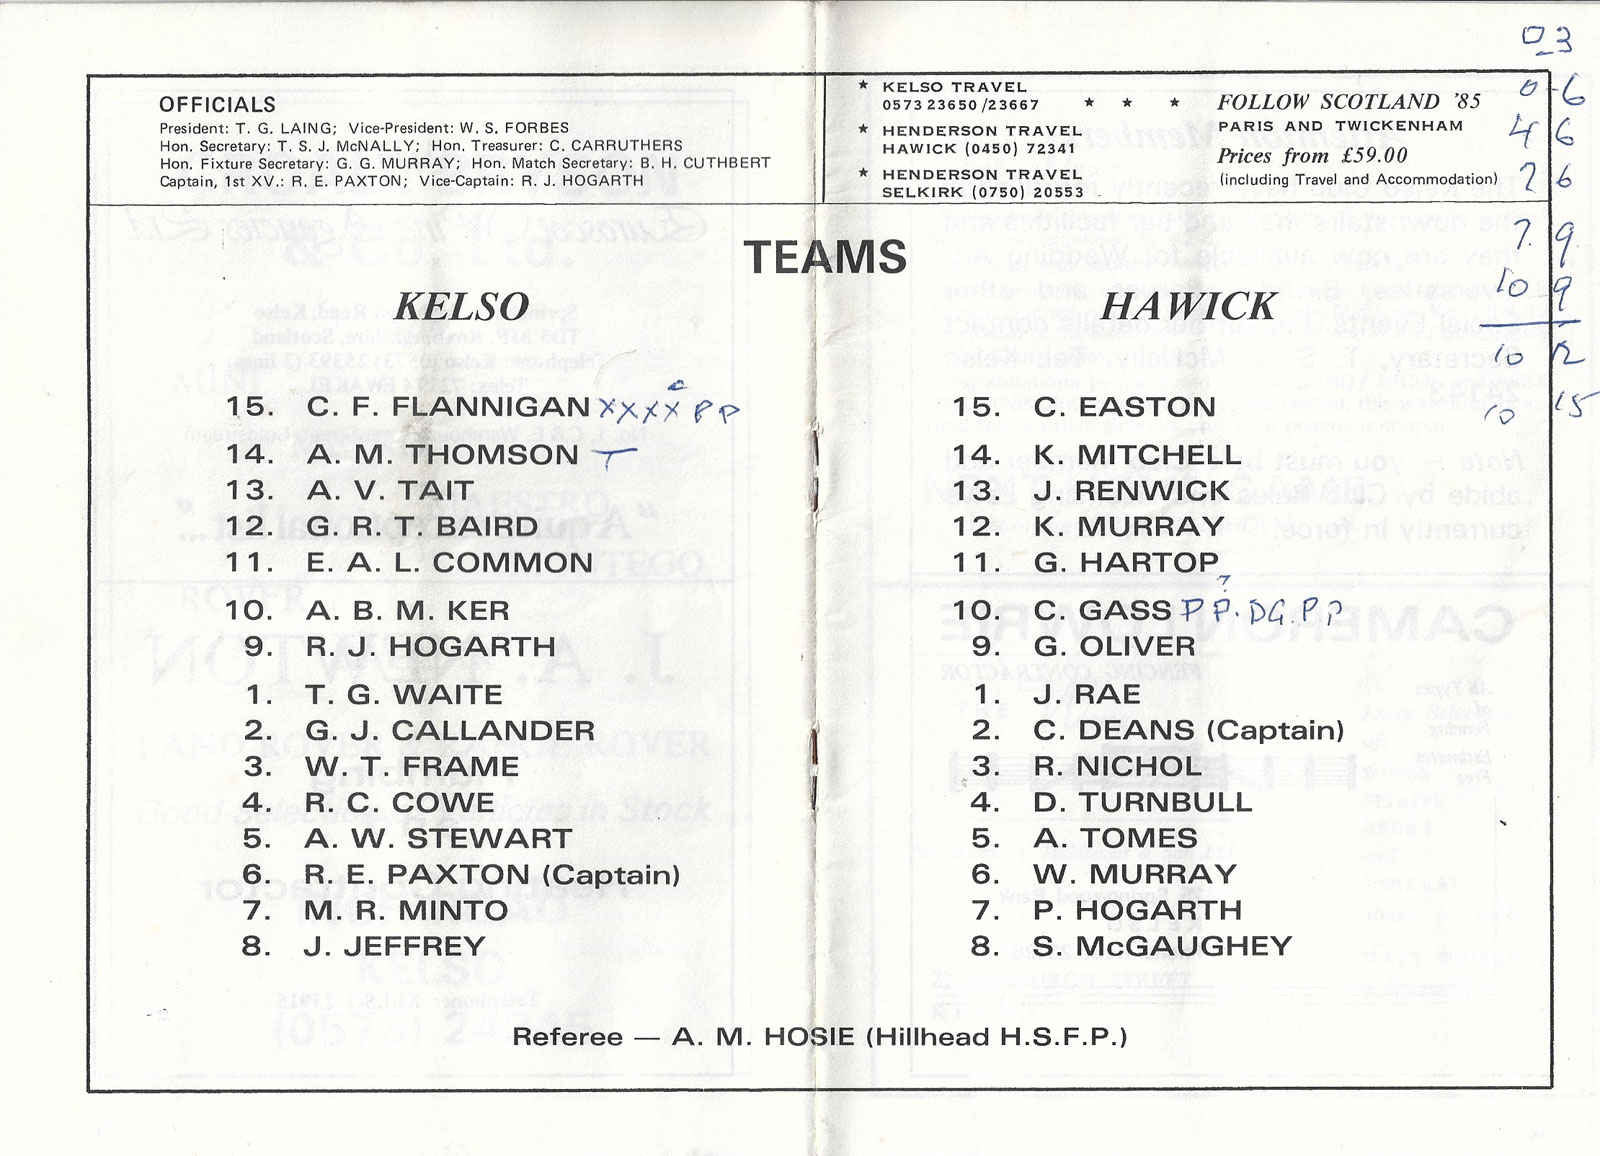 0 3
OFFICIALS
President: T. G. LAING; Vice-President: W. S. FORBES
Hon. Secretary: T. S. J. McNALLY; Hon. Treasurer: C. CARRUTHERS
Hon. Fixture Secretary: G. G. MURRAY; Hon. Match Secretary: B. H. CUTHBERT
Captain, 1st XV.: R. E. PAXTON; Vice-Captain: R. J. HOGARTH
★ KELSO TRAVEL
0573 23650/23667
★ HENDERSON TRAVEL
HAWICK (0450) 72341
★ HENDERSON TRAVEL
SELKIRK (0750) 20553
★ ★ ★
FOLLOW SCOTLAND '85
PARIS AND TWICKENHAM
Prices from £59.00
(including Travel and Accommodation)
0 6
4 6
7 6
7. 9
10 9
10 12
10 15
TEAMS
KELSO
15. C. F. FLANNIGAN XXXX PP
14. A. M. THOMSON T
13. A. V. TAIT
12. G. R. T. BAIRD
11. E. A. L. COMMON
10. A. B. M. KER
9. R. J. HOGARTH
1. T. G. WAITE
2. G. J. CALLANDER
3. W. T. FRAME
4. R. C. COWE
5. A. W. STEWART
6. R. E. PAXTON (Captain)
7. M. R. MINTO
8. J. JEFFREY
HAWICK
15. C. EASTON
14. K. MITCHELL
13. J. RENWICK
12. K. MURRAY
11. G. HARTOP
10. C. GASS P P. DG. P P
9. G. OLIVER
1. J. RAE
2. C. DEANS (Captain)
3. R. NICHOL
4. D. TURNBULL
5. A. TOMES
6. W. MURRAY
7. P. HOGARTH
8. S. McGAUGHEY
Referee — A. M. HOSIE (Hillhead H.S.F.P.)